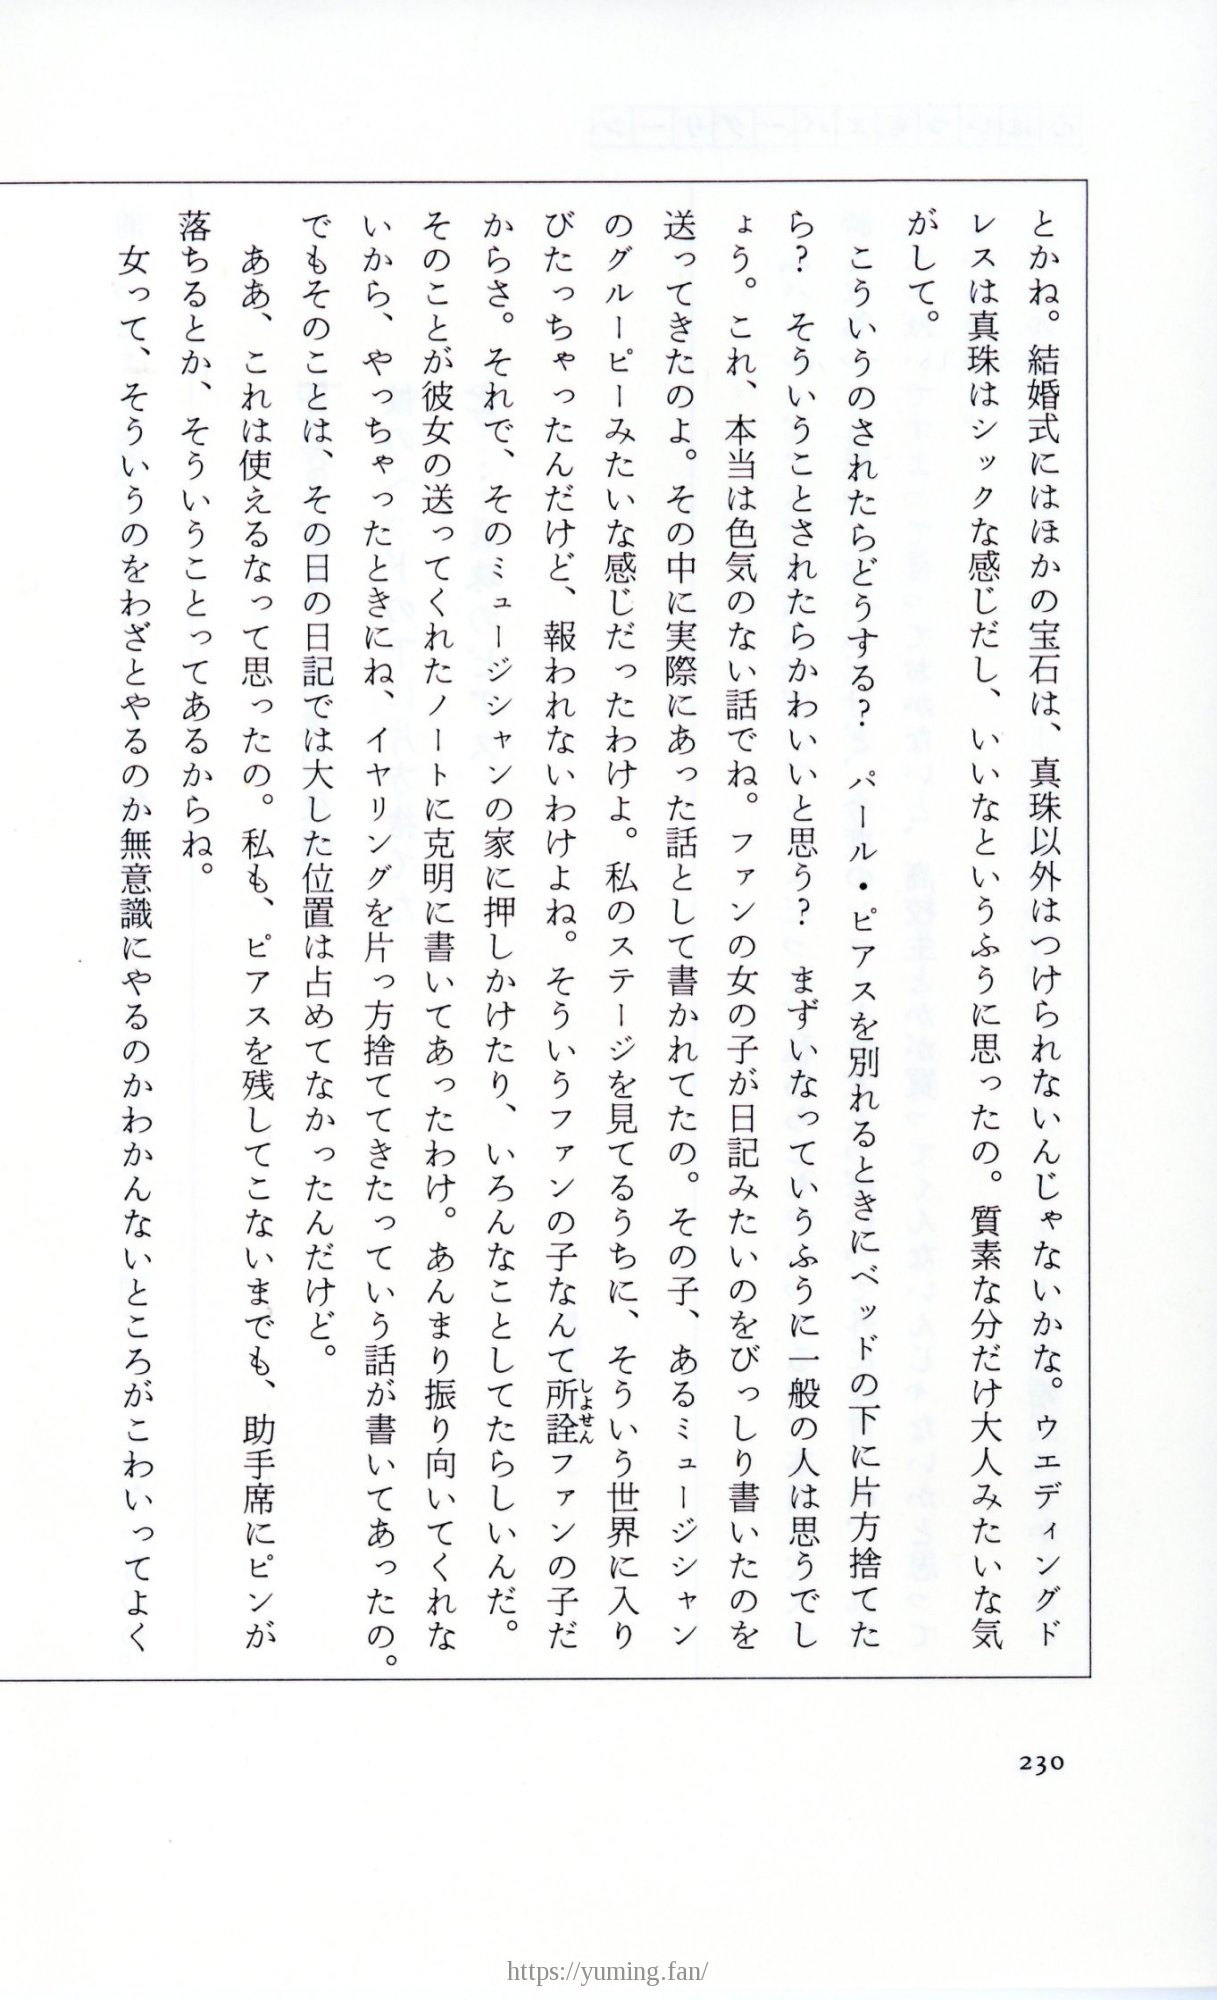 とかね。結婚式にはほかの宝石は、真珠以外はつけられないんじゃないかな。ウエディングド
レスは真珠はシックな感じだし、いいなというふうに思ったの。質素な分だけ大人みたいな気
がして。
こういうのされたらどうする？　パール・ピアスを別れるときにベッドの下に片方捨てた
ら？　そういうことされたらかわいいと思う？　まずいなっていうふうに一般の人は思うでし
ょう。これ、本当は色気のない話でね。ファンの女の子が日記みたいのをびっしり書いたのを
送ってきたのよ。その中に実際にあった話として書かれてたの。その子、あるミュージシャン
のグルーピーみたいな感じだったわけよ。私のステージを見てるうちに、そういう世界に入り
びたっちゃったんだけど、報われないわけよね。そういうファンの子なんて所詮ファンの子だ
しょせん
からさ。それで、そのミュージシャンの家に押しかけたり、いろんなことしてたらしいんだ。
そのことが彼女の送ってくれたノートに克明に書いてあったわけ。あんまり振り向いてくれな
いから、やっちゃったときにね、イヤリングを片っ方捨ててきたっていう話が書いてあったの。
でもそのことは、その日の日記では大した位置は占めてなかったんだけど。
ああ、これは使えるなって思ったの。私も、ピアスを残してこないまでも、助手席にピンが
落ちるとか、そういうことってあるからね。
女って、そういうのをわざとやるのか無意識にやるのかわかんないところがこわいってよく
230
https://yuming.fan/